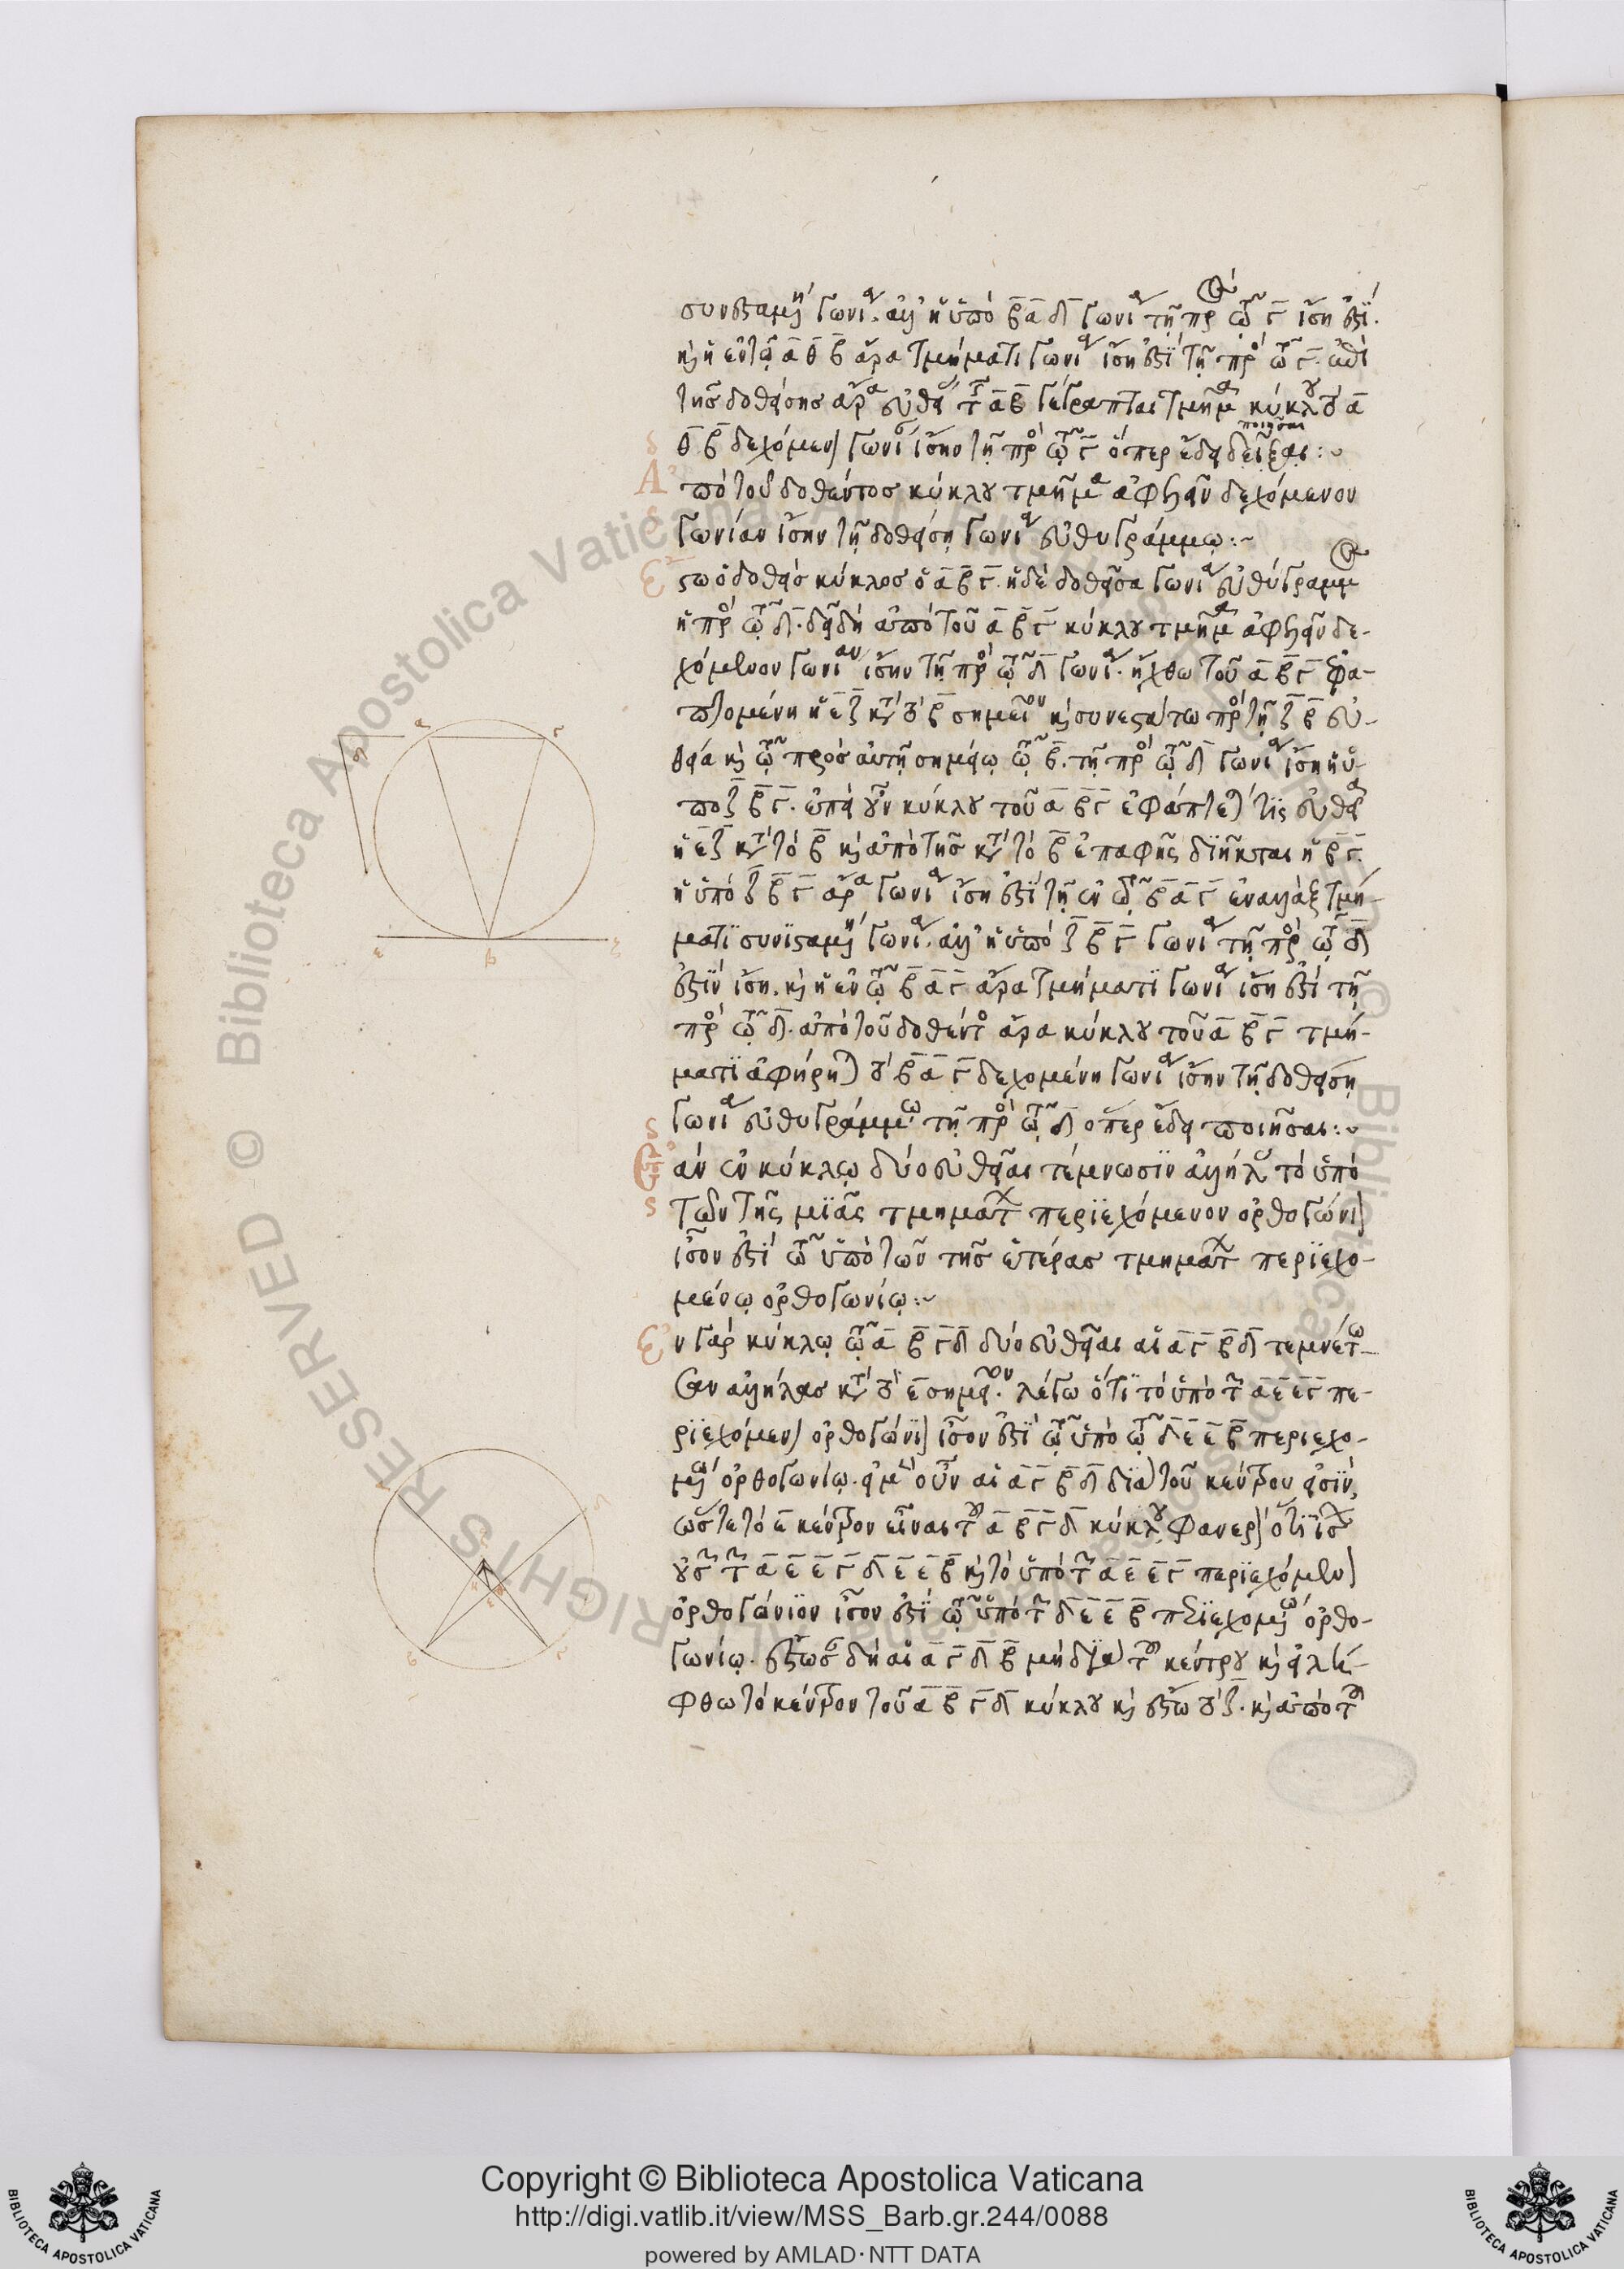 συνισταμένη γωνία. ἀλλ' ἡ ὑπὸ β̅α̅ δ̅ γωνία τῇ πρὸς τῷ γ̅ ἴση ἐστί.
καὶ ἡ ἐν τῷ α̅ θ̅ β̅ ἄρα τμήματι γωνία ἴση ἐστὶ τῇ πρὸς τῷ γ̅. ἐπὶ
τῆς δοθείσης ἄρα εὐθείας τῆς α̅β̅ γέγραπται τμῆμα κύκλου τὸ α̅
ποιῆσαι
θ̅ β̅ δεχόμενον γωνίαν ἴσην τῇ πρὸς τῷ γ̅ ὅπερ ἔδει δεῖξαι:~
δ
Ἀπὸ τοῦ δοθέντος κύκλου τμῆμα ἀφελεῖν δεχόμενον
γωνίαν ἴσην τῇ δοθείσῃ γωνίᾳ εὐθυγράμμῳ:~
Ἔστω ὁ δοθεὶς κύκλος ὁ α̅ β̅ γ̅. ἡ δὲ δοθεῖσα γωνία εὐθύγραμμος
ἡ πρὸς τῷ δ̅. δεῖ δὴ ἀπὸ τοῦ α̅ β̅ γ̅ κύκλου τμῆμα ἀφελεῖν δε-
χόμενον γωνίαν ἴσην τῇ πρὸς τῷ δ̅ γωνίᾳ. ἤχθω τοῦ α̅ β̅ γ̅ ἐφα-
πτομένη ἡ ε̅ζ̅ κατὰ τὸ β̅ σημεῖον καὶ συνεστάτω πρὸς τῇ ζ̅ β̅ εὐ-
θείᾳ καὶ τῷ πρὸς αὐτῇ σημείῳ τῷ β̅. τῇ πρὸς τῷ δ̅ γωνίᾳ ἴση ἡ ὑ-
πὸ ζ̅ β̅ γ̅. ἐπεὶ οὖν κύκλου τοῦ α̅ β̅γ̅ ἐφάπτεταί τις εὐθεῖα
ἡ ε̅ζ̅ κατὰ τὸ β̅ καὶ ἀπὸ τῆς κατὰ τὸ β̅ ἐπαφῆς διῆκται ἡ β̅γ̅.
ἡ ὑπὸ ζ̅ β̅ γ̅ ἄρα γωνία ἴση ἐστὶ τῇ ἐν τῷ β̅ α̅ γ̅ ἐναλλὰξ τμή-
ματι συνισταμένῃ γωνίᾳ. ἀλλ' ἡ ὑπὸ ζ̅ β̅ γ̅ γωνία τῇ πρὸς τῷ δ̅
ἐστὶν ἴση. καὶ ἡ ἐν τῷ β̅ α̅ γ̅ ἄρα τμήματι γωνία ἴση ἐστὶ τῇ
πρὸς τῷ δ̅. ἀπὸ τοῦ δοθέντος ἄρα κύκλου τοῦ α̅ β̅ γ̅ τμή-
ματι ἀφῄρηται τὸ β̅ α̅ γ̅ δεχομένη γωνίαν ἴσην τῇ δοθείσῃ
γωνίᾳ εὐθυγράμμῳ τῇ πρὸς τῷ δ̅ ὅπερ ἔδει ποιῆσαι:~
Ἐὰν ἐν κύκλῳ δύο εὐθεῖαι τέμνωσιν ἀλλήλας τὸ ὑπὸ
τῶν τῆς μιᾶς τμημάτων περιεχόμενον ὀρθογώνιον
ἴσον ἐστὶ τῷ ὑπὸ τῶν τῆς ἑτέρας τμημάτων περιεχο-
μένῳ ὀρθογωνίῳ:~
Ἐν γὰρ κύκλῳ τῷ α̅ β̅ γ̅δ̅ δύο εὐθεῖαι αἱ α̅γ̅ β̅δ̅ τεμνέτω-
σαν ἀλλήλας κατὰ τὸ ε̅ σημεῖον. λέγω ὅτι τὸ ὑπὸ τῶν α̅ε̅ ε̅γ̅ πε-
ριεχόμενον ὀρθογώνιον ἴσον ἐστὶ τῷ ὑπὸ τῷ δ̅ε̅ ε̅ β̅ περιεχο-
μένῳ ὀρθογωνίῳ. εἰ μὲν οὖν αἱ α̅γ̅ β̅δ̅ διὰ τοῦ κέντρου εἰσὶν,
ὥστε τὸ ε̅ κέντρον εἶναι τοῦ α̅ β̅γ̅δ̅ κύκλου φανερὸν ὅτι ἴσων
οὐσῶν τῶν α̅ε̅ ε̅γ̅ δ̅ε̅ ε̅β̅ καὶ τὸ ὑπὸ τῶν α̅ε̅ ε̅γ̅ περιεχόμενον
ὀρθογώνιον ἴσον ἐστὶ τῷ ὑπὸ τῶν δ̅ε̅ ε̅β̅ περιεχομένῳ ὀρθο-
γωνίῳ. ἔστωσαν δὴ αἱ α̅γ̅ δ̅β̅ μὴ διὰ τοῦ κέντρου καὶ εἰλή-
φθω τὸ κέντρον τοῦ α̅ β̅ γ̅δ̅ κύκλου καὶ ἔστω τὸ ζ̅. καὶ ἀπὸ τοῦ
Copyright © Biblioteca Apostolica Vaticana
http://digi.vatlib.it/view/MSS_Barb.gr.244/0088
powered by AMLAD·NTT DATA
BIBLIOTECA APOSTOLICA VATICANA
BIBLIOTECA APOSTOLICA VATICANA